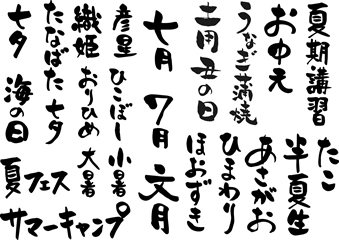 夏期講習
おゆえ
土用丑の日
うなぎ蒲焼
七月
7月
文月
彦星
ひこぼし
織姫
おりひめ
たなばた
七夕
七夕
海の日
たこ
半夏生
あさがお
ひまわり
ほおずき
小暑
大暑
夏フェス
サマーキャンプ